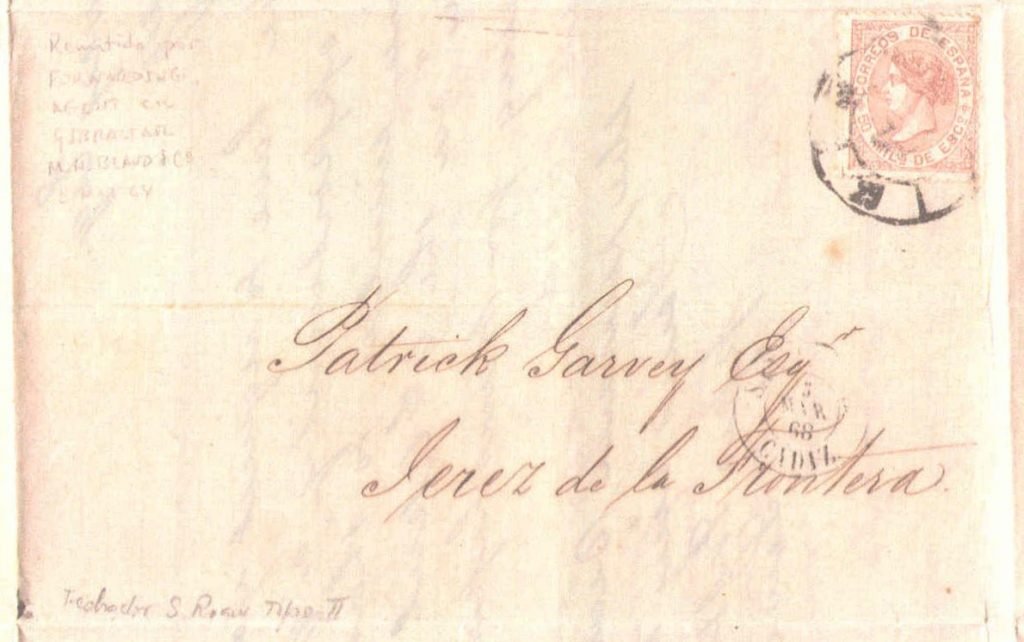 Remitido por
FORWARDING
AGENT EN
GIBRALTAR
M.H. BLAND & Co
CORREOS DE ESPAÑA
50 MILS DE ESCO
Patrick Garvey Esqr
Jerez de la Frontera
S
3
MAR
68
CADIZ
Fechador S. Roque Tipo II